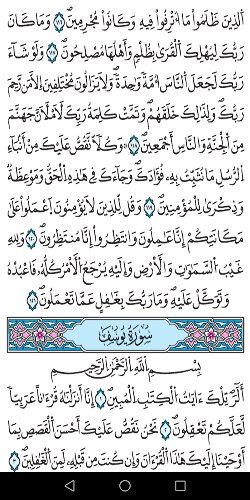 الَّذِينَ ظَلَمُوا مَا أُتْرِفُوا فِيهِ وَكَانُوا مُجْرِمِينَ ١١٦ وَمَا كَانَ
رَبُّكَ لِيُهْلِكَ الْقُرَىٰ بِظُلْمٍ وَأَهْلُهَا مُصْلِحُونَ ١١٧ وَلَوْ شَاءَ
رَبُّكَ لَجَعَلَ النَّاسَ أُمَّةً وَاحِدَةً وَلَا يَزَالُونَ مُخْتَلِفِينَ إِلَّا مَن رَّحِمَ
رَبُّكَ وَلِذَٰلِكَ خَلَقَهُمْ وَتَمَّتْ كَلِمَةُ رَبِّكَ لَأَمْلَأَنَّ جَهَنَّمَ
مِنَ الْجِنَّةِ وَالنَّاسِ أَجْمَعِينَ ١١٨ وَكُلًّا نَّقُصُّ عَلَيْكَ مِنْ أَنبَاءِ
الرُّسُلِ مَا نُثَبِّتُ بِهِ فُؤَادَكَ وَجَاءَكَ فِي هَٰذِهِ الْحَقُّ وَمَوْعِظَةٌ
وَذِكْرَىٰ لِلْمُؤْمِنِينَ ١١٩ وَقُل لِّلَّذِينَ لَا يُؤْمِنُونَ اعْمَلُوا عَلَىٰ
مَكَانَتِكُمْ إِنَّا عَامِلُونَ وَانتَظِرُوا إِنَّا مُنتَظِرُونَ ١٢٠ وَلِلَّهِ
غَيْبُ السَّمَاوَاتِ وَالْأَرْضِ وَإِلَيْهِ يُرْجَعُ الْأَمْرُ كُلُّهُ فَاعْبُدْهُ
وَتَوَكَّلْ عَلَيْهِ وَمَا رَبُّكَ بِغَافِلٍ عَمَّا تَعْمَلُونَ ١٢١
سُورَةُ يُوسُفَ
بِسْمِ اللَّهِ الرَّحْمَٰنِ الرَّحِيمِ
الٓر تِلْكَ ءَايَاتُ الْكِتَابِ الْمُبِينِ ١ إِنَّا أَنزَلْنَاهُ قُرْءَانًا عَرَبِيًّا
لَّعَلَّكُمْ تَعْقِلُونَ ٢ نَحْنُ نَقُصُّ عَلَيْكَ أَحْسَنَ الْقَصَصِ بِمَا
أَوْحَيْنَا إِلَيْكَ هَٰذَا الْقُرْءَانَ وَإِن كُنتَ مِن قَبْلِهِ لَمِنَ الْغَافِلِينَ ٣